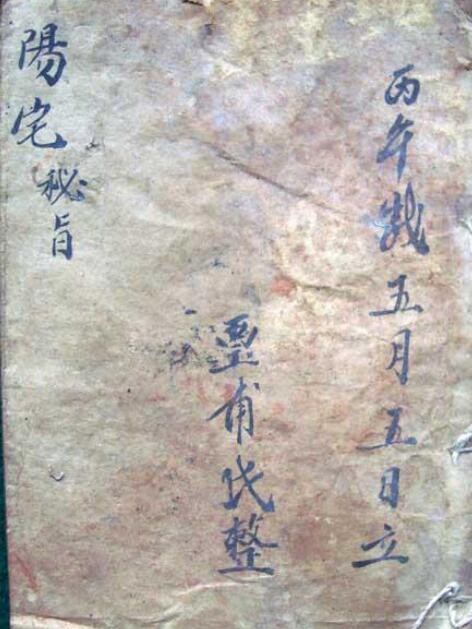 丙午歲五月五日立
甫氏整
陽宅秘旨